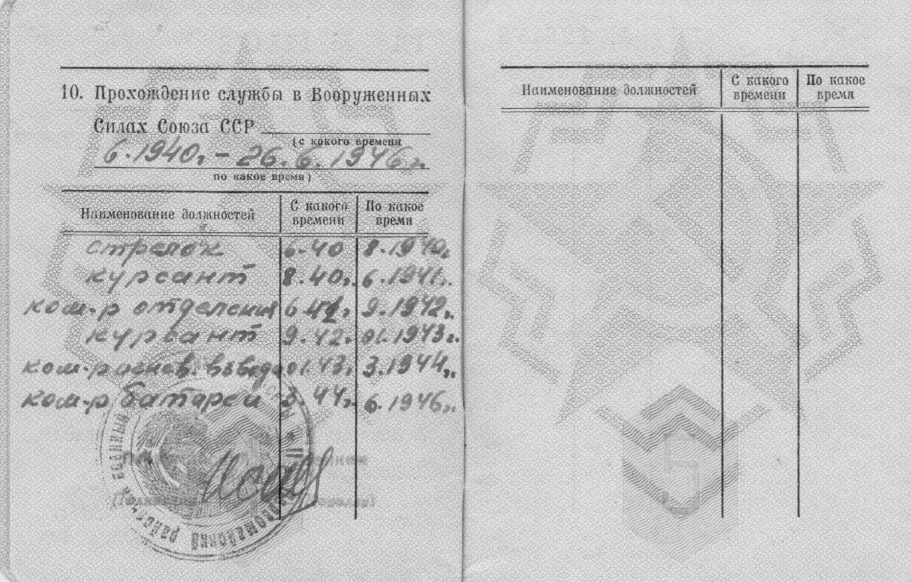 10. Прохождение службы в Вооруженных
Силах Союза ССР
(с какого времени
6.1940г. – 26.6.1946г.
по какое время)
Наименование должностей С какого времени По какое время
стрелок 6-40 8.1940г.
курсант 8.40г. 6.1941г.
ком-р отделения 6 41г. 9.1942г.
курсант 9.42г. 01.1943г.
ком-р огнев. взвода 01.43г. 3.1944г.
ком-р батареи 3.44г. 6.1946г.
военный
район
Наименование должностей С какого времени По какое время